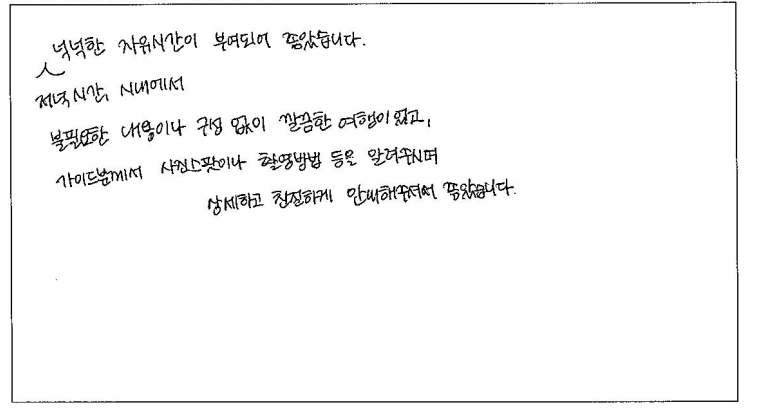 넉넉한 자유시간이 부여되어 좋았습니다.
저녁시간, 시내에서
불필요한 내용이나 구성 없이 깔끔한 여행이었고,
가이드분께서 사진스팟이나 촬영방법 등을 알려주시며
상세하고 친절하게 안내해주셔서 좋았습니다.